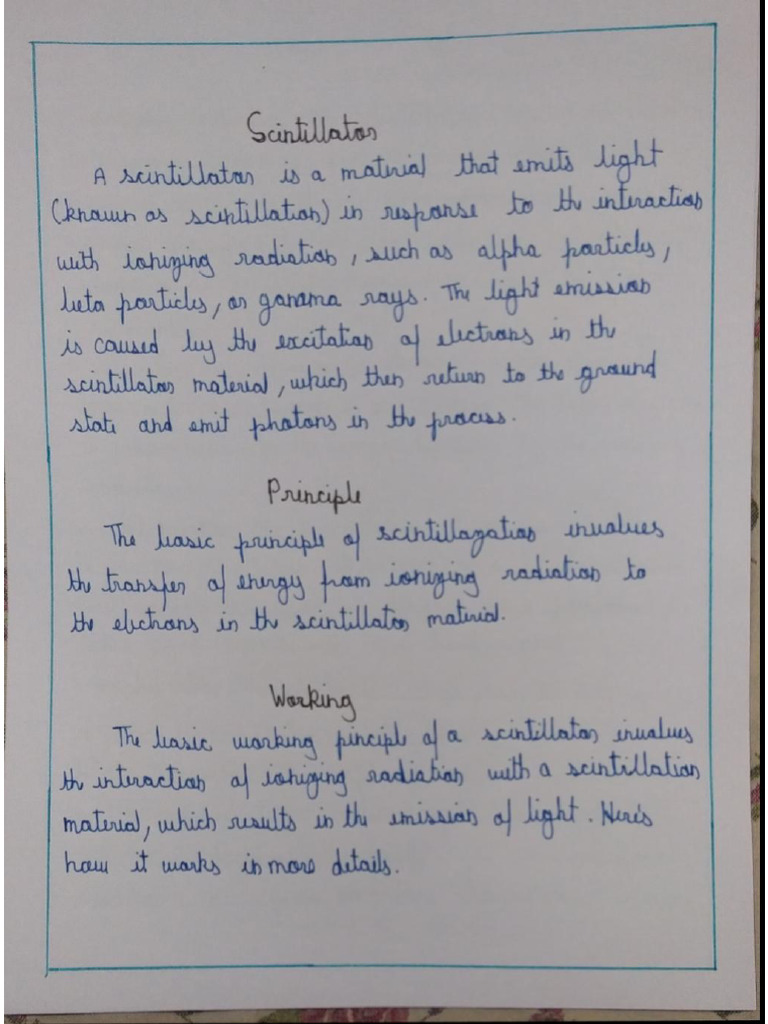 Scintillator
A scintillator is a material that emits light
(known as scintillation) in response to the interaction
with ionizing radiation, such as alpha particles,
beta particles, or gamma rays. The light emission
is caused by the excitation of electrons in the
scintillator material, which then return to the ground
state and emit photons in the process.
Principle
The basic principle of scintillazation involves
the transfer of energy from ionizing radiation to
the electrons in the scintillator material.
Working
The basic working pinciple of a scintillator involves
the interaction of ionizing radiation with a scintillation
material, which results in the emission of light. Here's
how it works in more details.